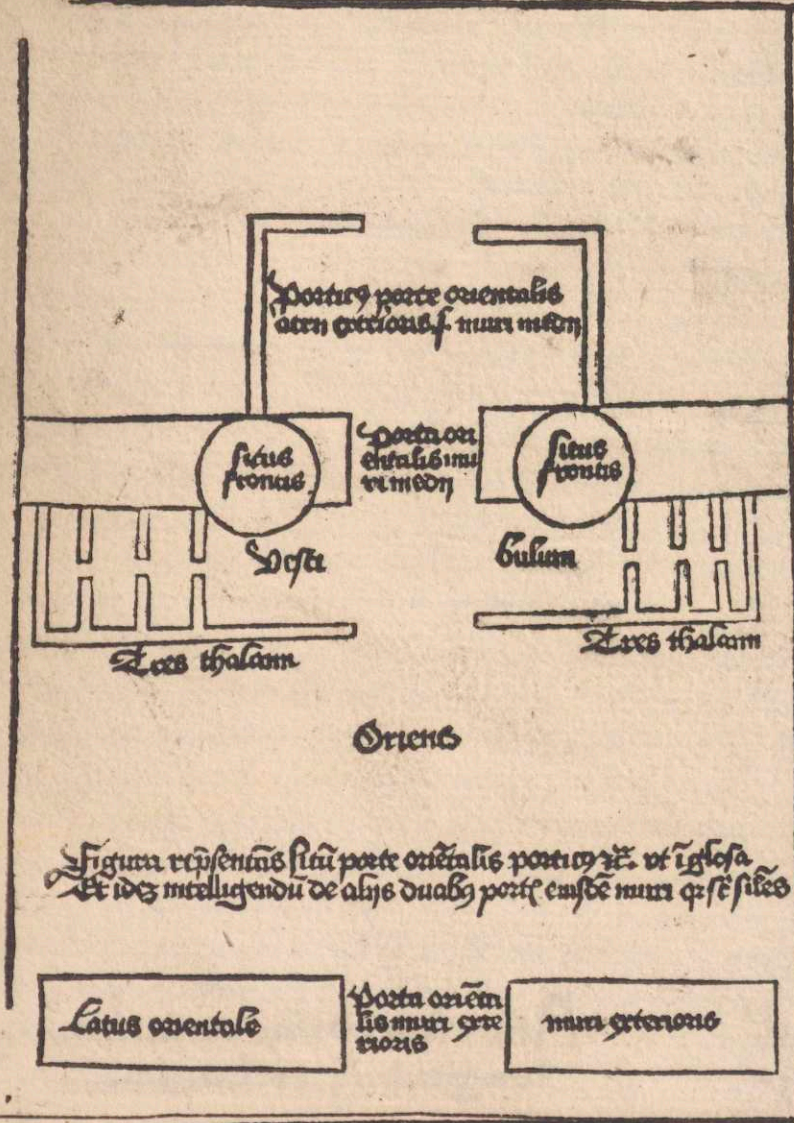 Porticꝰ porte orientalis
atrii exterioris .s. muri medij
situs
frontis
Porta ori
entalis mu
ri medij
situs
frontis
Vesti
bulum
Tres thalami
Tres thalami
Oriens
Figura rep̄sentās sitū porte oriētalis porticꝰ ⁊c̄. vt ī glosa
Et ideꝫ intelligendū de alijs duabꝰ port eiusdē muri q̄ sūt siłes
Latus orientale
Porta oriēta
lis muri exte
rioris
muri exterioris